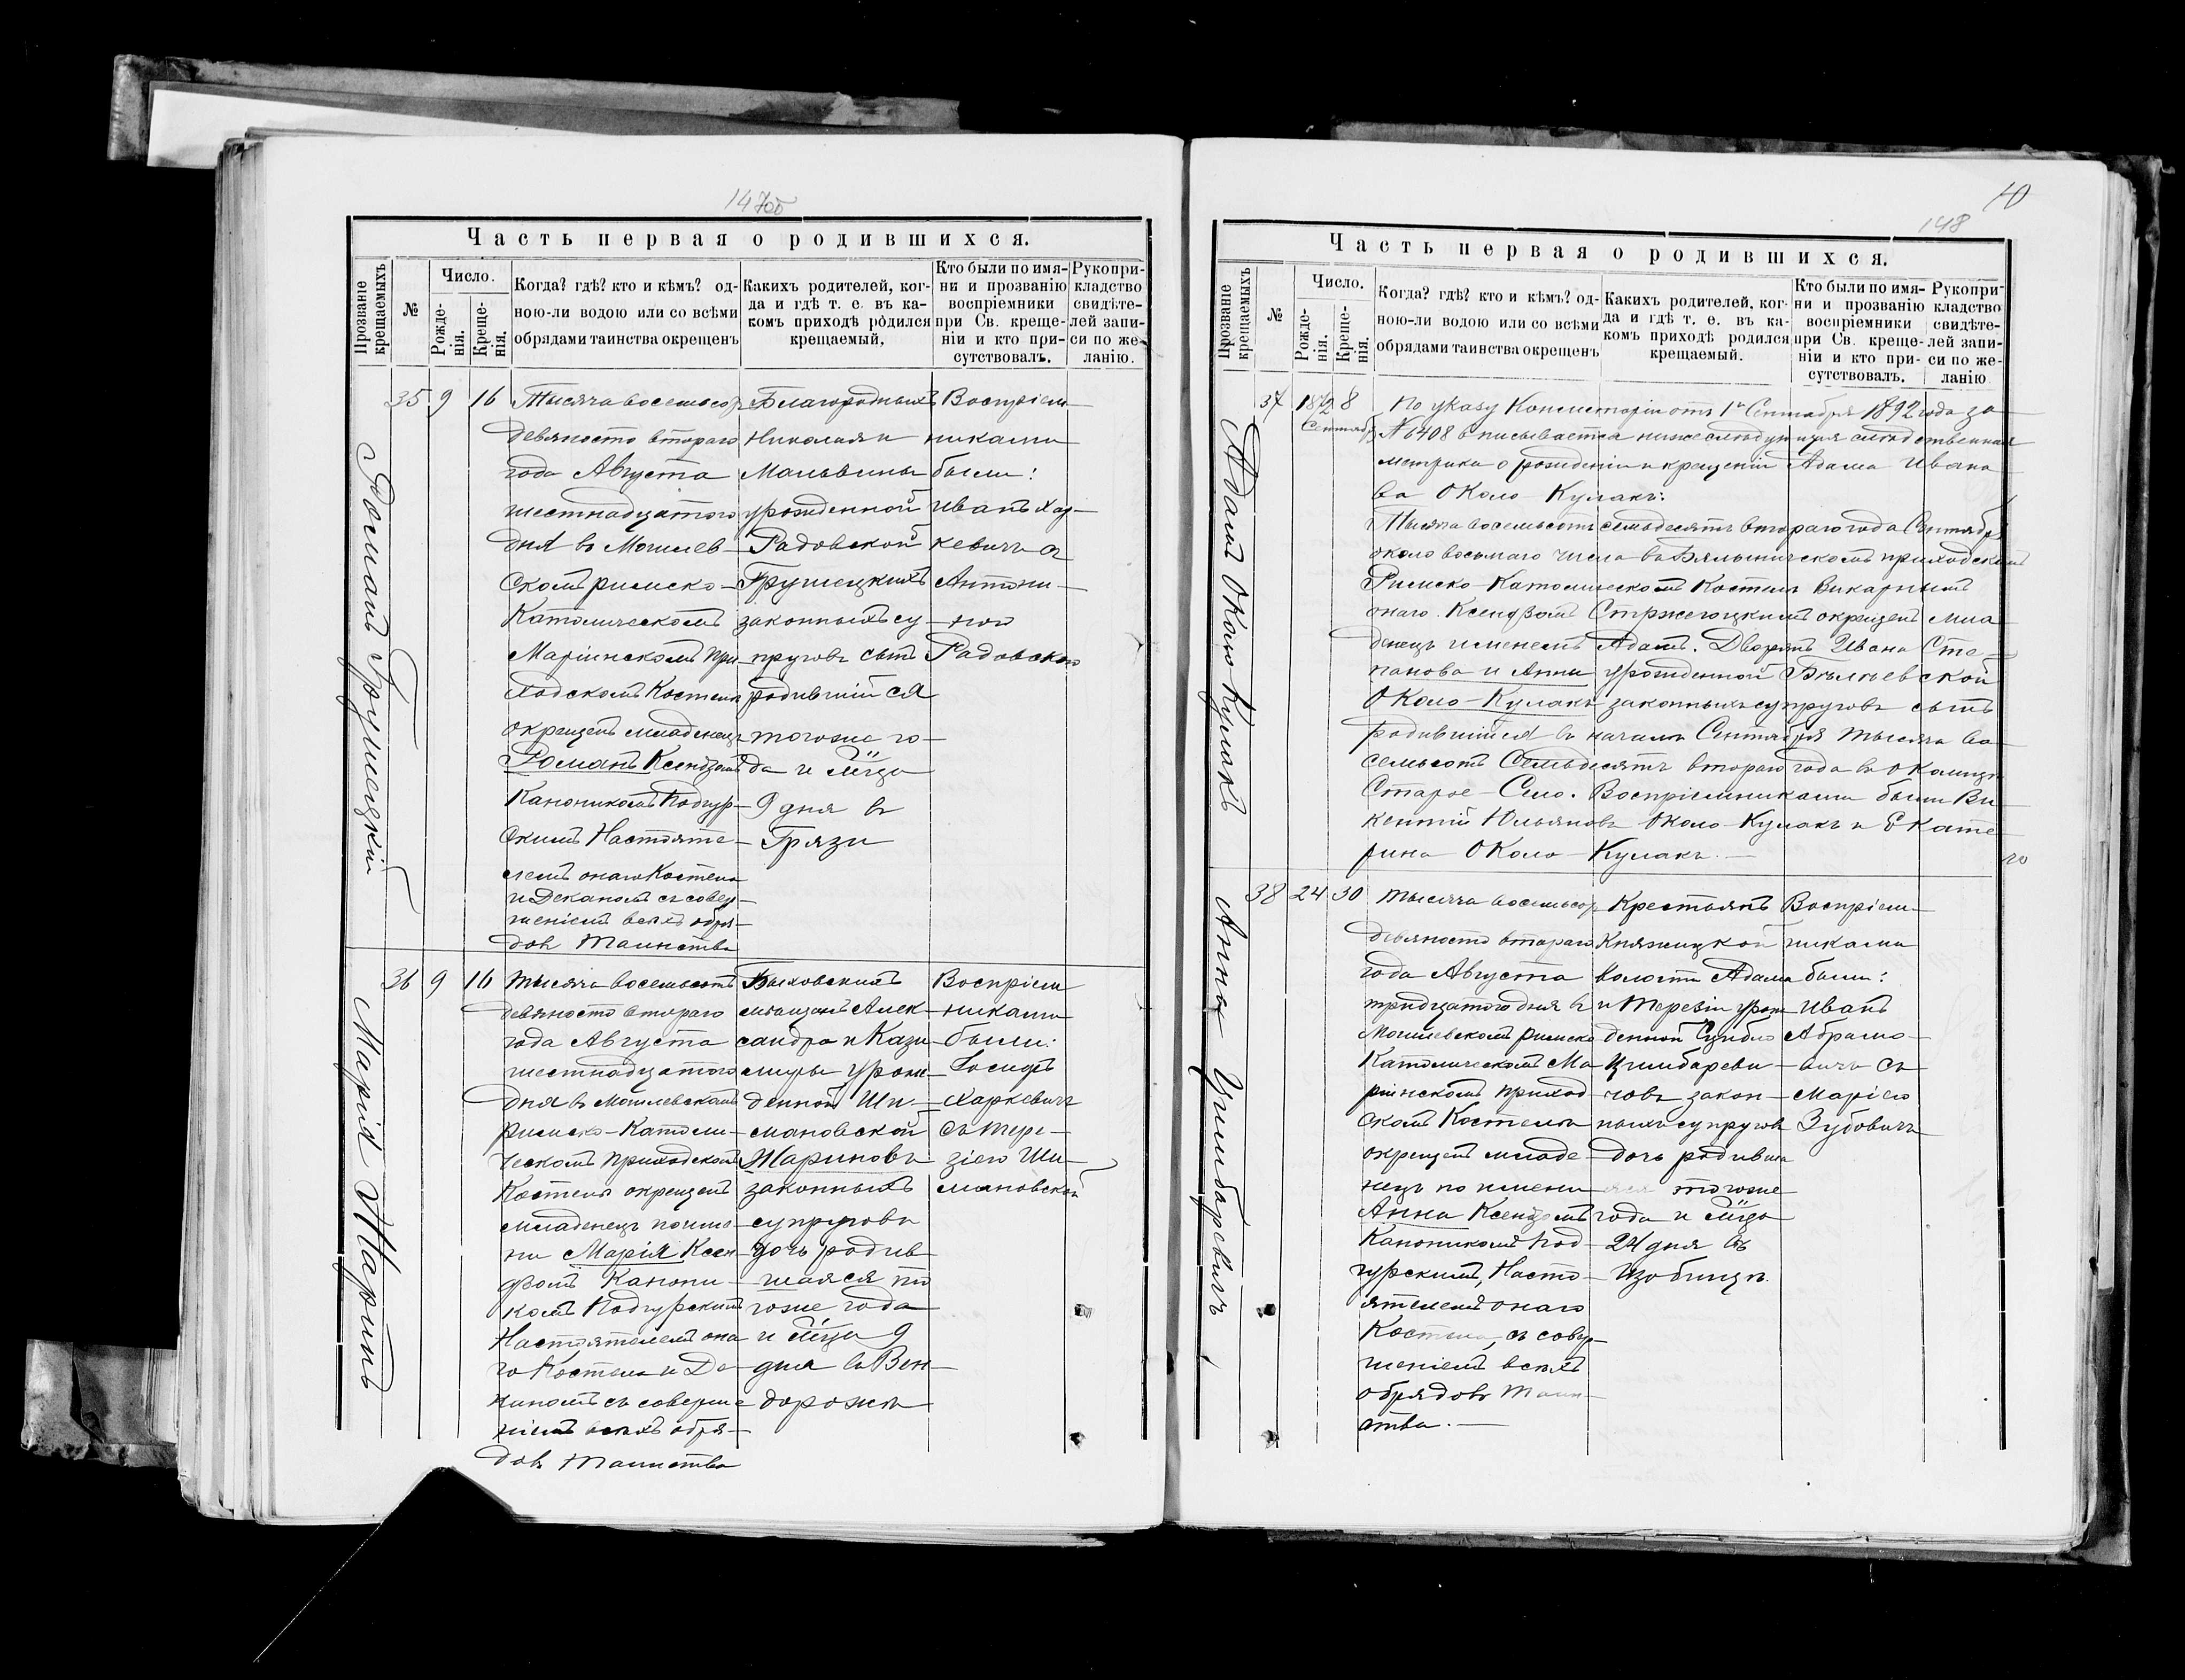 147об
Часть первая о родившихся.
Прозваніе крещаемыхъ
№
Число.
Рожде-
нія.
Креще-
нія.
Когда? гдѣ? кто и кѣмъ? од-
ною-ли водою или со всѣми
обрядами таинства окрещенъ
Какихъ родителей, ког-
да и гдѣ т. е. въ ка-
комъ приходѣ родился
крещаемый.
Кто были по имя-
ни и прозванію
воспріемники
при Св. креще-
ніи и кто при-
сутствовалъ.
Рукопри-
кладство
свидѣте-
лей запи-
си по же-
ланію.
Романъ Грушецкій
35 9 16
Тысяча восемьсот
девяносто втораго
года Августа
шестнадцатого
дня въ Могилев-
скомъ римско-
Католическомъ
Маріинскомъ при
ходскомъ Костелѣ
окрещенъ младенецъ
Романъ Ксендзомъ
Каноникомъ Подгур-
скимъ Настояте-
лемъ онаго Костела
и Деканомъ съ совер-
шеніемъ всѣхъ обря-
довъ Таинства
Благородныхъ
Николая и
Мальвины
урожденной
Радовской
Грушецкихъ
законныхъ су-
пруговъ сынъ
родившійся
тогоже го-
да и мѣсца
9 дня въ
Грязи
Воспріем-
никами
были:
Иванъ Хар-
кевичъ съ
Антони-
ною
Радовскою
Марія Жаринъ
36 9 16
Тысяча восемьсотъ
девяносто втораго
года Августа
шестнадцатого
дня въ Могилевскомъ
римско-Католи-
ческомъ приходскомъ
Костелѣ окрещенъ
младенецъ по име-
ни Марія Ксен-
дзомъ Канони-
комъ Подгурскимъ
Настоятелемъ она
го Костела и Де-
каномъ съ соверше
ніемъ всѣхъ обря-
довъ Таинства
Быховскихъ
мѣщанъ Алек-
сандра и Кази-
миры урож-
денной Ши-
мановской
Жариновъ
законныхъ
супруговъ
дочь родив-
шаяся то
гоже года
и мѣсца 9
дня въ Вен-
дорожѣ
Воспріем
никами
были:
Іосифъ
Харкевичъ
съ Тере-
зіею Ши-
мановской
10
148
Часть первая о родившихся.
Прозваніе крещаемыхъ
№
Число.
Рожде-
нія.
Креще-
нія.
Когда? гдѣ? кто и кѣмъ? од-
ною-ли водою или со всѣми
обрядами таинства окрещенъ
Какихъ родителей, ког-
да и гдѣ т. е. въ ка-
комъ приходѣ родился
крещаемый.
Кто были по имя-
ни и прозванію
воспріемники
при Св. креще-
ніи и кто при-
сутствовалъ.
Рукопри-
кладство
свидѣте-
лей запи-
си по же-
ланію
Адамъ Около-Кулакъ
37 1872 8
Сентябр
По указу Консисторіи отъ 1го Сентября 1892 года за
№ 6408 вписывается нижеслѣдующая слѣдственная
метрика о рожденіи и крещеніи Адама Ивана
ва Около-Кулакъ:
Тысяча восемьсотъ семьдесятъ втораго года Сентябр
около восьмаго числа въ Бялыничскомъ приходскомъ
Римско-Католическомъ Костелѣ Викарнымъ
онаго Ксендзомъ Стржегоцкимъ окрещенъ мла
денецъ именемъ Адамъ. Дворянъ Ивана Сте-
панова и Анны урожденной Бѣлѣевской
Около-Кулакъ законныхъ супруговъ сынъ
родившійся въ началѣ Сентября тысяча во
семьсотъ Семьдесятъ втораго года въ Околицѣ
Старое-Село. Воспріемниками были Ви
кентій Юльяновъ Около-Кулакъ и Екате
рина Около-Кулакъ.
Анна Цимбаревичъ
38 24 30
Тысяча восемьсот
девяносто втораго
года Августа
тридцатого дня въ
Могилевскомъ римско
Католическомъ Ма-
ріинскомъ приход
скомъ Костелѣ
окрещенъ младе-
нецъ по имени
Анна Ксендзомъ
Каноникомъ Под-
гурскимъ, Насто-
ятелемъ онаго
Костела, съ совер-
шеніемъ всѣхъ
обрядовъ Таин-
ства.
Крестьянъ
Княжицкой
волости Адама
и Терезіи урож
денной
Цимбареви-
човъ закон-
ныхъ супруговъ
дочь родивша
яся тогоже
года и мѣсца
24 дня въ
Изобищѣ.
Воспріем-
никами
были:
Иванъ
Абрамо-
вичъ съ
Маріею
Зубовичъ